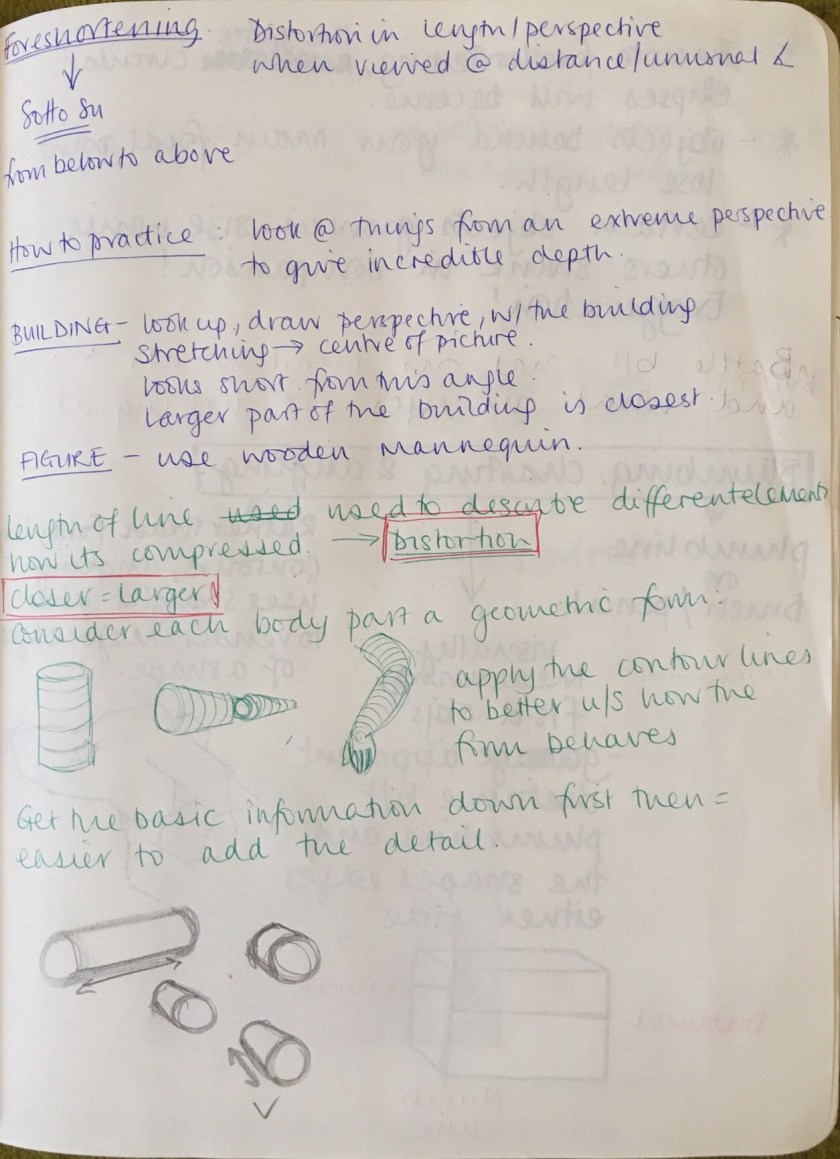 Foreshortening. Distortion in length/perspective
when viewed @ distance/unusual ∠
↓
Sotto Su
from below to above
How to practice : look @ things from an extreme perspective
to give incredible depth.
BUILDING - look up, draw perspective, w/ the building
stretching → centre of picture.
looks short from this angle.
Larger part of the building is closest.
FIGURE - use wooden mannequin.
length of line used used to describe different elements
how its compressed. → Distortion
closer = larger
Consider each body part a geometric form.
apply the contour lines
to better u/s how the
form behaves
Get the basic information down first then =
easier to add the detail.